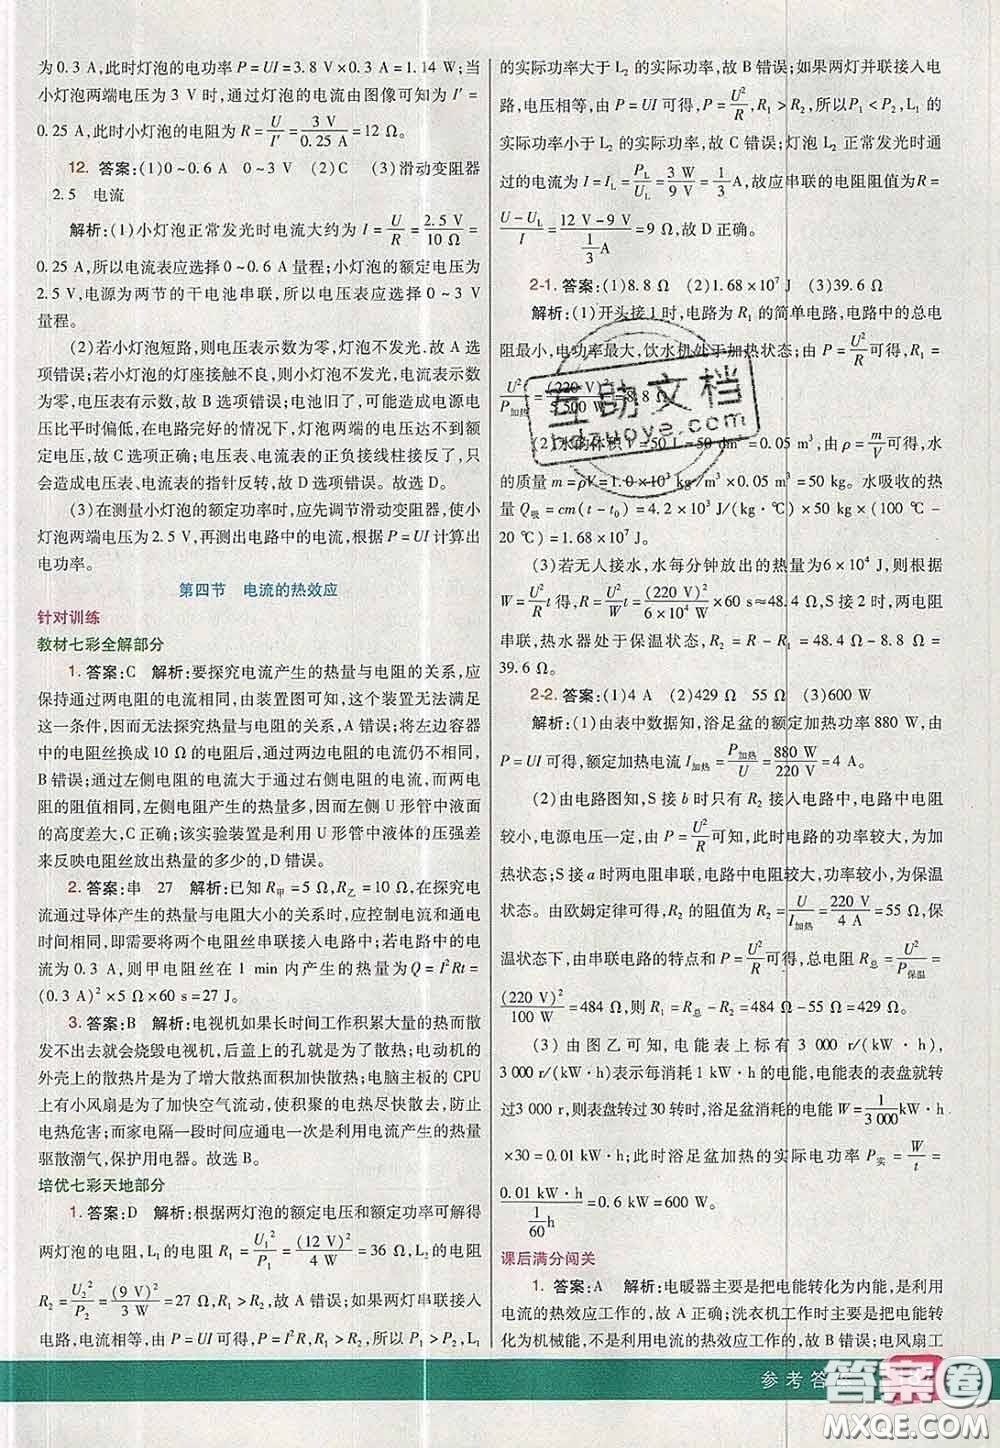 为0.3 A,此时灯泡的电功率 P = UI = 3.8 V×0.3 A = 1.14 W;当
小灯泡两端电压为 3 V 时,通过灯泡的电流由图像可知为 I′ =
0.25 A,此时小灯泡的电阻为 R = U/I′ = 3 V/0.25 A = 12 Ω。
12. 答案:(1)0~0.6 A　0~3 V　(2)C　(3)滑动变阻器
2.5　电流
解析:(1)小灯泡正常发光时电流大约为 I = U/R = 2.5 V/10 Ω =
0.25 A,所以电流表应选择 0~0.6 A 量程;小灯泡的额定电压为
2.5 V,电源为两节的干电池串联,所以电压表应选择 0~3 V
量程。
(2)若小灯泡短路,则电压表示数为零,灯泡不发光,故 A 选
项错误;若小灯泡的灯座接触不良,则小灯泡不发光,电流表示
数为零,故 B 选项错误;电池旧了,可能造成电源电
压比平时偏低,在电路完好的情况下,灯泡两端的电压达不到额
定电压,故 C 选项正确;电压表、电流表的正负接线柱接反了,只
会造成电压表、电流表的指针反转,故 D 选项错误。故选 D。
(3)在测量小灯泡的额定功率时,应先调节滑动变阻器,使小
灯泡两端电压为 2.5 V,再测出电路中的电流,根据 P = UI 计算出
电功率。
第四节　电流的热效应
针对训练
教材七彩全解部分
1. 答案:C　解析:要探究电流产生的热量与电阻的关系,应
保持通过两电阻的电流相同,由装置图可知,这个装置无法满足
这一条件,因而无法探究热量与电阻的关系,A 错误;将左边容器
中的电阻丝换成 10 Ω 的电阻后,通过两边电阻的电流仍不相同,
B 错误;通过左侧电阻的电流大于通过右侧电阻的电流,而两电
阻的阻值相同,左侧电阻产生的热量多,因而左侧 U 形管中液面
的高度差大,C 正确;该实验装置是利用 U 形管中液体的压强差
来反映电阻丝放出热量的多少的,D 错误。
2. 答案:串　27　解析:已知 R甲 = 5 Ω,R乙 = 10 Ω,在探究电
流通过导体产生的热量与电阻大小的关系时,应控制电流和通电
时间相同,即需要将这两个电阻丝串联接入电路中;若电路中电流
为 0.3 A,则甲电阻丝在 1 min 内产生的热量 Q = I²Rt =
(0.3 A)²×5 Ω×60 s = 27 J。
3. 答案:B　解析:电视机如果长时间工作积累大量的热而散
发不出去就会烧毁电视机,后盖上的孔就是为了散热;电动机的
外壳上的散热片是为了增大散热面积加快散热;电脑主板的 CPU
上有小风扇是为了加快空气流动,使积聚的电热尽快散去,防止
电热危害;而家电隔一段时间应通电一次是利用电流产生的热量
驱散潮气,保护用电器。故选 B。
培优七彩天地部分
1. 答案:D　解析:根据两灯泡的额定电压和额定功率可解得
两灯泡的电阻,L₁ 的电阻 R₁ = U₁²/P₁ = (12 V)²/4 W = 36 Ω,L₂ 的电阻
R₂ = U₂²/P₂ = (9 V)²/3 W = 27 Ω,故 A 错误;如果两灯串联接入
电路,电流相等,由 P = UI = I²R 可得,R₁ > R₂,所以 P₁ > P₂,L₁
的实际功率大于 L₂ 的实际功率,故 B 错误;如果两灯并联接入电
路,电压相等,由 P = UI 可得,P = U²/R,R₁ > R₂,所以 P₁ < P₂,L₁ 的
实际功率小于 L₂ 的实际功率,故 C 错误;灯泡 L₂ 正常发光时通
过的电流为 I = I_L = P_L/U_L = 3 W/9 V = 1/3 A,故应串联的电阻阻值为 R =
(U − U_L)/I = (12 V − 9 V)/(1/3 A) = 9 Ω,故 D 正确。
2-1. 答案:(1)8.8 Ω　(2)1.68×10⁷ J　(3)39.6 Ω
解析:(1)开头接 1 时,电路为 R₁ 的简单电路,电路中的总电
阻最小,电功率最大,饮水机处于加热状态;由 P = U²/R 可得,R₁ =
U²/P加热 = (220 V)²/5 500 W = 8.8 Ω
(2)水的体积 V = 50 L = 50 dm³ = 0.05 m³,由 ρ = m/V 可得,水
的质量 m = ρV = 1.0×10³ kg/m³×0.05 m³ = 50 kg。水吸收的热
量 Q吸 = cm(t − t₀) = 4.2×10³ J/(kg·℃)×50 kg×(100 ℃ −
20 ℃) = 1.68×10⁷ J。
(3)若无人接水,水每分钟需吸热量为 6×10⁴ J,则根据
W = U²/R t 得,R = U²/W t = (220 V)²/(6×10⁴ J)×60 s ≈ 48.4 Ω,S 接 2 时,两电阻
串联,热水器处于保温状态,R₂ = R − R₁ = 48.4 Ω − 8.8 Ω =
39.6 Ω。
2-2. 答案:(1)4 A　(2)429 Ω　55 Ω　(3)600 W
解析:(1)由表中数据知,浴足盆的额定加热功率 880 W,由
P = UI 可得,额定加热电流 I加热 = P加热/U = 880 W/220 V = 4 A。
(2)由电路图知,S 接 b 时只有 R₂ 接入电路中,电路中电阻
较小,电源电压一定,由 P = U²/R 可知,此时电路的功率较大,为加热
状态;S 接 a 时两电阻串联,电路中电阻较大,功率较小,为保温
状态。由欧姆定律可得,R₂ 的阻值为 U/I加热 = 220 V/4 A = 55 Ω,保
温状态下,由串联电路的特点和 P = U²/R 可得,总电阻 R总 = U²/P保温 =
(220 V)²/100 W = 484 Ω,则 R₁ = R总 − R₂ = 484 Ω − 55 Ω = 429 Ω。
(3)由图乙可知,电能表上标有 3 000 r/(kW·h),
3 000 r/(kW·h)表示每消耗 1 kW·h 的电能,电能表的表盘就转
过3 000 r,所以,表盘转过30转时,浴足盆消耗的电能 W = 1/3 000 kW·h
×30 = 0.01 kW·h;此时浴足盆加热的实际电功率 P实 = W/t =
0.01 kW·h/(1/60 h) = 0.6 kW = 600 W。
课后满分闯关
1. 答案:A　解析:电暖器主要是把电能转化为内能,是利用
电流的热效应工作的,故 A 正确;洗衣机工作时主要是把电能转
化为机械能,不是利用电流的热效应工作的,故 B 错误;电风扇工
参考答
互助文档
hdzuoye.com
答案圈
MXQE.COM